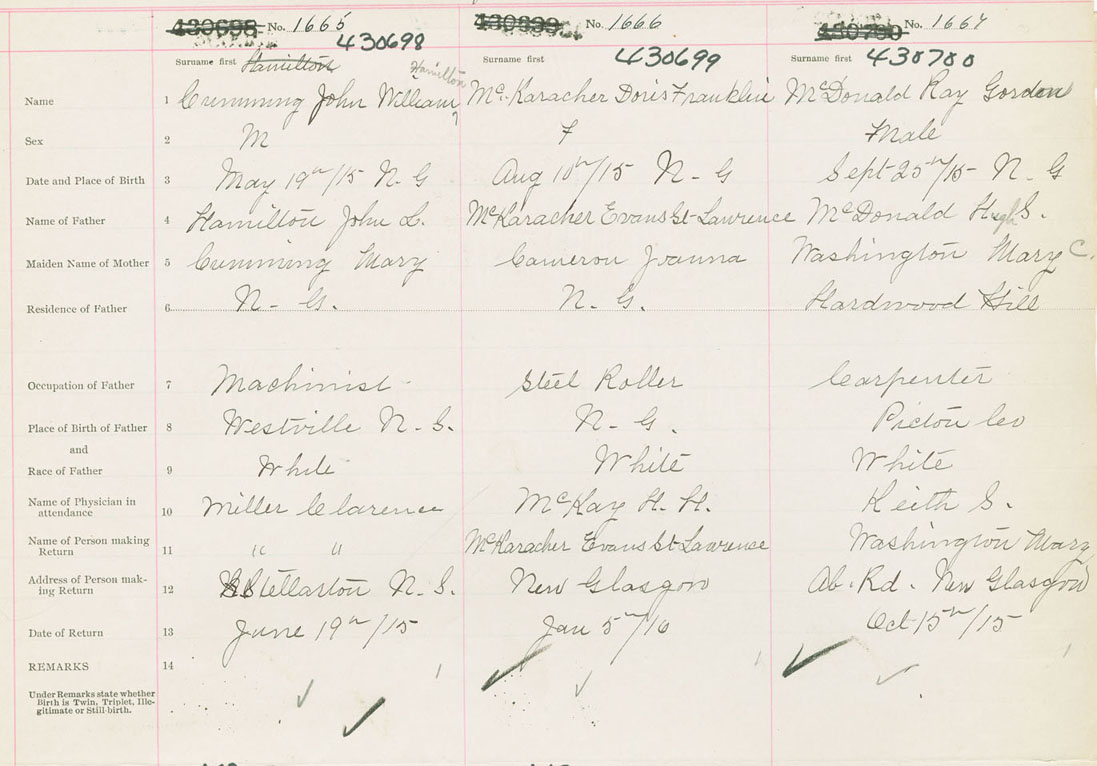 430698 No. 1665 430699 No. 1666 430700 No. 1667
430698 430699 430700
Surname first Hamilton Hamilton Surname first Surname first
Name 1 Cumming John William McKaracher Doris Franklin McDonald Ray Gordon
Sex 2 M F Male
Date and Place of Birth 3 May 19th/15 N-G Aug 10th/15 N-G Sept 25th/15 N-G
Name of Father 4 Hamilton John L. McKaracher Evans St-Lawrence McDonald Hugh S.
Maiden Name of Mother 5 Cumming Mary Cameron Joanna Washington Mary C.
Residence of Father 6 N-G. N-G. Hardwood Hill
Occupation of Father 7 Machinist- Steel Roller Carpenter
Place of Birth of Father 8 Westville N-S. N-G. Pictou Co
and
Race of Father 9 White White White
Name of Physician in
attendance 10 Miller Clarence McKay H. H. Keith S.
Name of Person making
Return 11 " " McKaracher Evans St Lawrence Washington Mary
Address of Person mak-
ing Return 12 Stellarton N-S. New Glasgow Ab. Rd. New Glasgow
Date of Return 13 June 19th/15 Jan 5th/16 Oct 15th/15
REMARKS 14 1 1 1
Under Remarks state whether
Birth is Twin, Triplet, Ille-
gitimate or Still-birth.